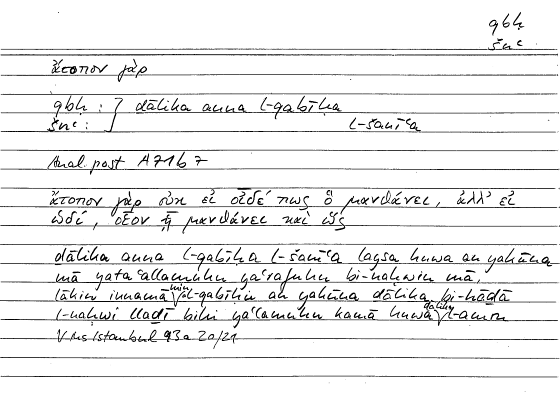 qbḥ
šnʿ
ἄτοπον γὰρ
qbḥ : } ḏālika anna l-qabīḥa
šnʿ : l-šanīʿa
Anal. post A 71 b 7
ἄτοπον γὰρ οὐκ εἰ οἶδέ πως ὃ μανθάνει, ἀλλ' εἰ
ὡδί, οἷον ᾗ μανθάνει καὶ ὥς
ḏālika anna l-qabīḥa l-šanīʿa laysa huwa an yakūna
mā yataʿallamuhu yaʿrafuhu bi-naḥwin mā,
lākin innamā min l-qabīḥi an yakūna ḏālika bi-hāḏā
l-naḥwi llaḏī bihi yaʿlamuhu kamā huwa ḏālika l-amru
V ms Istanbul 93a 20/21